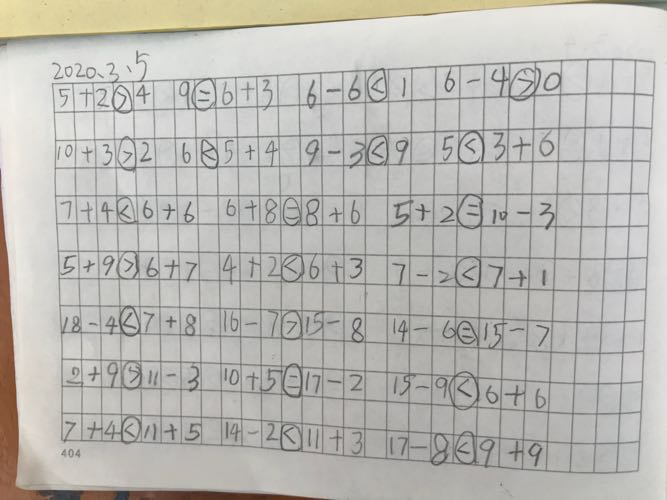 2020.3.5
5+2>4 9=6+3 6-6<1 6-4>0
10+3>2 6<5+4 9-3<9 5<3+6
7+4<6+6 6+8=8+6 5+2=10-3
5+9>6+7 4+2<6+3 7-2<7+1
18-4<7+8 16-7>15-8 14-6=15-7
2+9>11-3 10+5=17-2 15-9<6+6
7+4<11+5 14-2<11+3 17-8<9+9
404